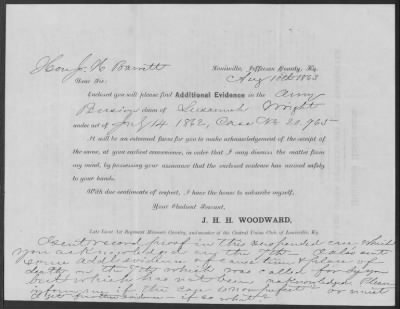 Louisville, Jefferson County, Ky.
Hon J. H Barrett
Aug 18th 1863
Dear Sir:
Enclosed you will please find Additional Evidence in the Army
Pension claim of Susannah Wright
under act of July 14 1862, Case No 20,965
It will be an esteemed favor for you to make acknowledgement of the receipt of the
same, at your earliest convenience, in order that I may dismiss the matter from
my mind, by possessing your assurance that the enclosed evidence has arrived safely
to your hands.
With due sentiments of respect, I have the honor to subscribe myself,
Your Obedient Servant,
J. H. H. WOODWARD,
Late Local 1st Regiment Missouri Cavalry, and member of the Central Union Club, of Louisville, Ky.
I sent record proof in this suspended case which
you acknowledged on the 7th I also sent
some addl evidence of cause time & place of
death on the which was called for by you
but which has not been acknowledged. Please
inform me if the case is now perfect or must
I get further evidence - if so what?